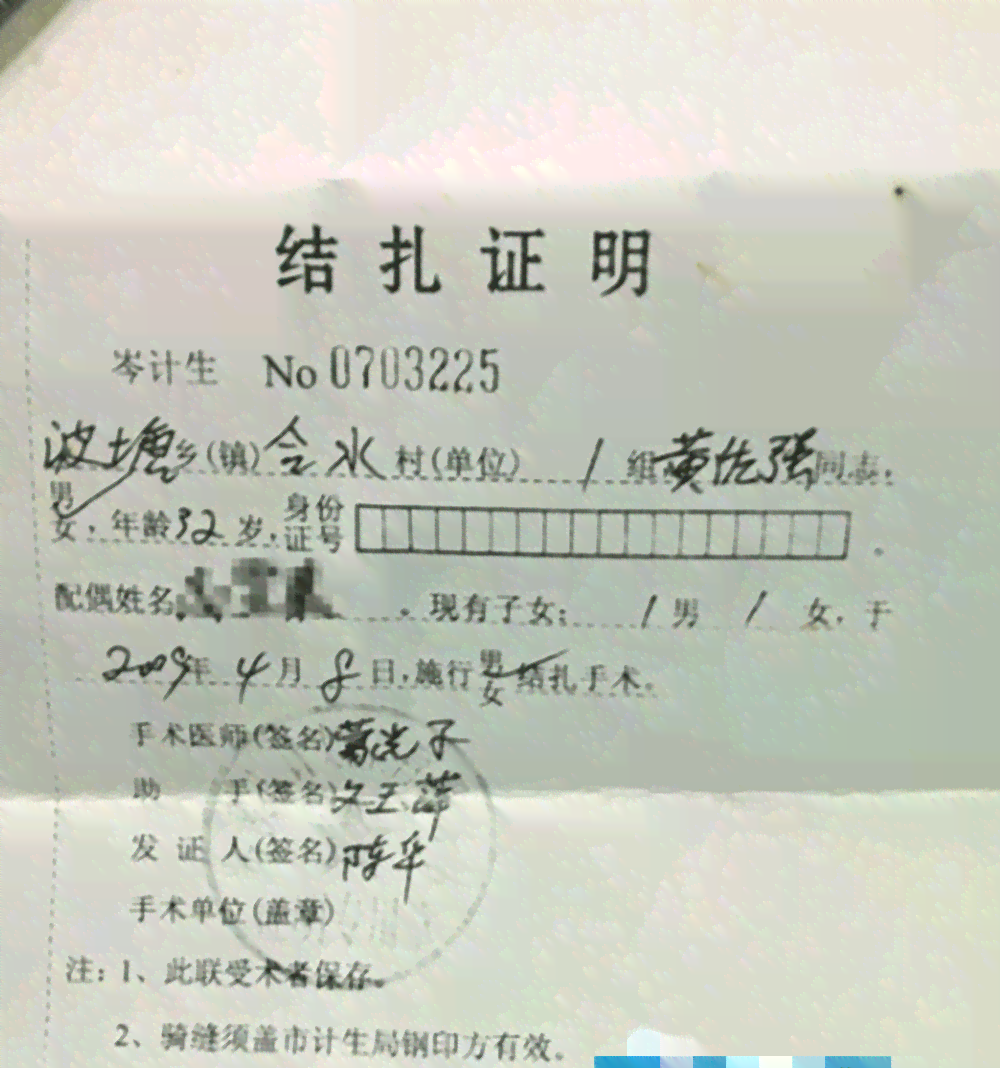 结扎证明
岑计生 No 0703225
波塘乡(镇)合水村(单位) / 组黄佐强同志,
男
女,年龄32岁,身份证号 。
配偶姓名 。现有子女: / 男 / 女,于
2009年4月8日,施行男女结扎手术。
手术医师(签名)
助 手(签名)文玉萍
发 证 人(签名)陈华
手术单位(盖章)
注:1、此联受术者保存。
2、骑缝须盖市计生局钢印方有效。